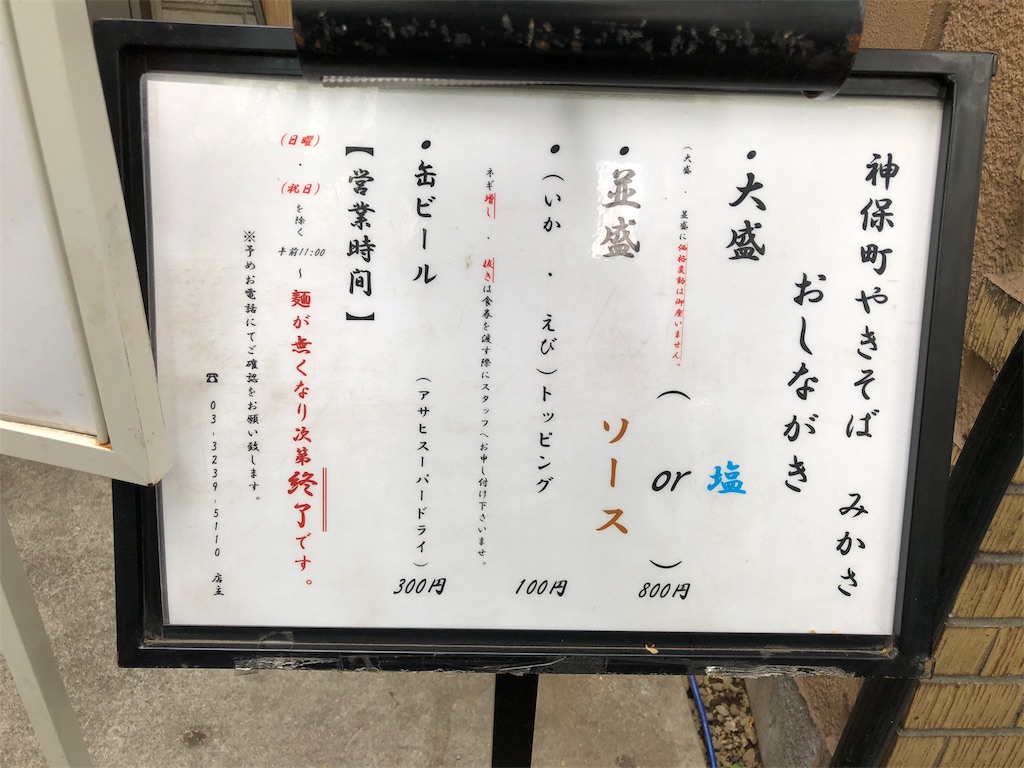 神保町やきそば　みかさ
おしながき
・大盛
（大盛・並盛に価格変動は御座いません。
・並盛
（塩 or ソース）800円
・（いか・えび）トッピング　100円
ネギ増し・抜きは食券を渡す際にスタッフへお申し付け下さいませ。
・缶ビール　（アサヒスーパードライ）300円
【営業時間】
（日曜）・（祝日）を除く　午前11:00～麺が無くなり次第終了です。
※予めお電話にてご確認をお願い致します。
☎　03-3239-5110　店主